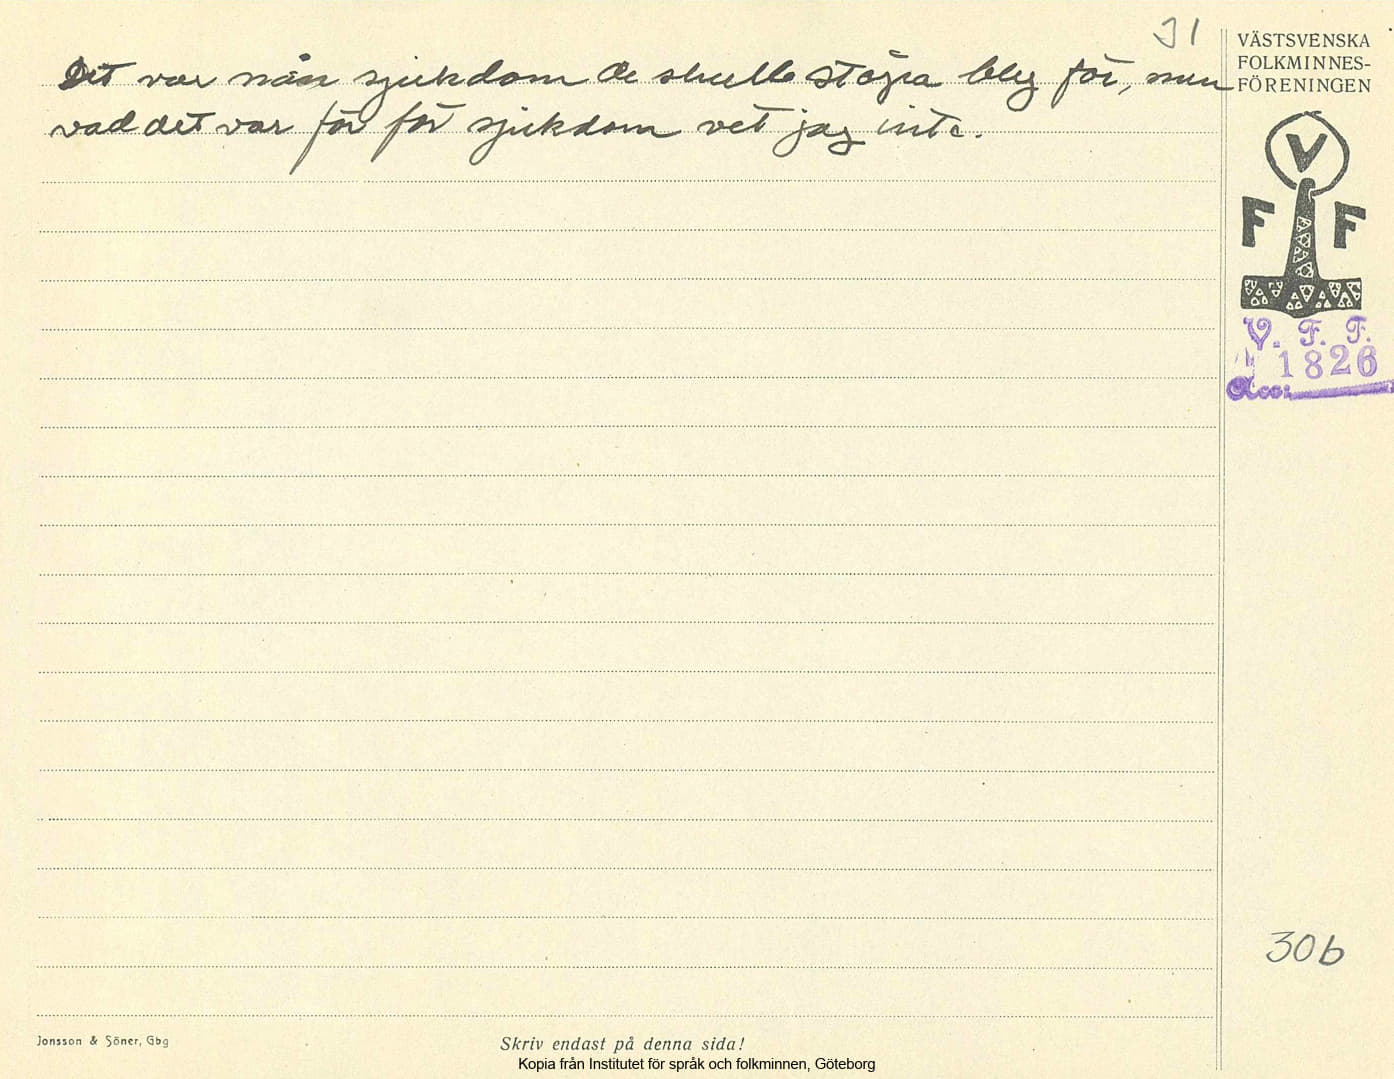 31
VÄSTSVENSKA
FOLKMINNES-
FÖRENINGEN
Det var nån sjukdom de skulle stöpa bly för, men
vad det var för för sjukdom vet jag inte.
V
F F
V. F. F.
1826
Acc:
30b
Jonsson & Söner, Gbg
Skriv endast på denna sida!
Kopia från Institutet för språk och folkminnen, Göteborg